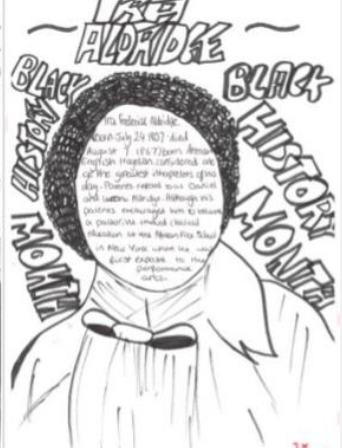 IRA
ALDRIDGE
BLACK
HISTORY
MONTH
BLACK
HISTORY
MONTH
Ira Frederick Aldridge
Born July 24 1807 died
August 7, 1867) born
English considered one
of the greatest of his
day. Parents Daniel
and Aldridge. Although his
parents encouraged him to become
a pastor, he classical
education at the African Free School
in New York where he was
first exposed to the
performance
arts.